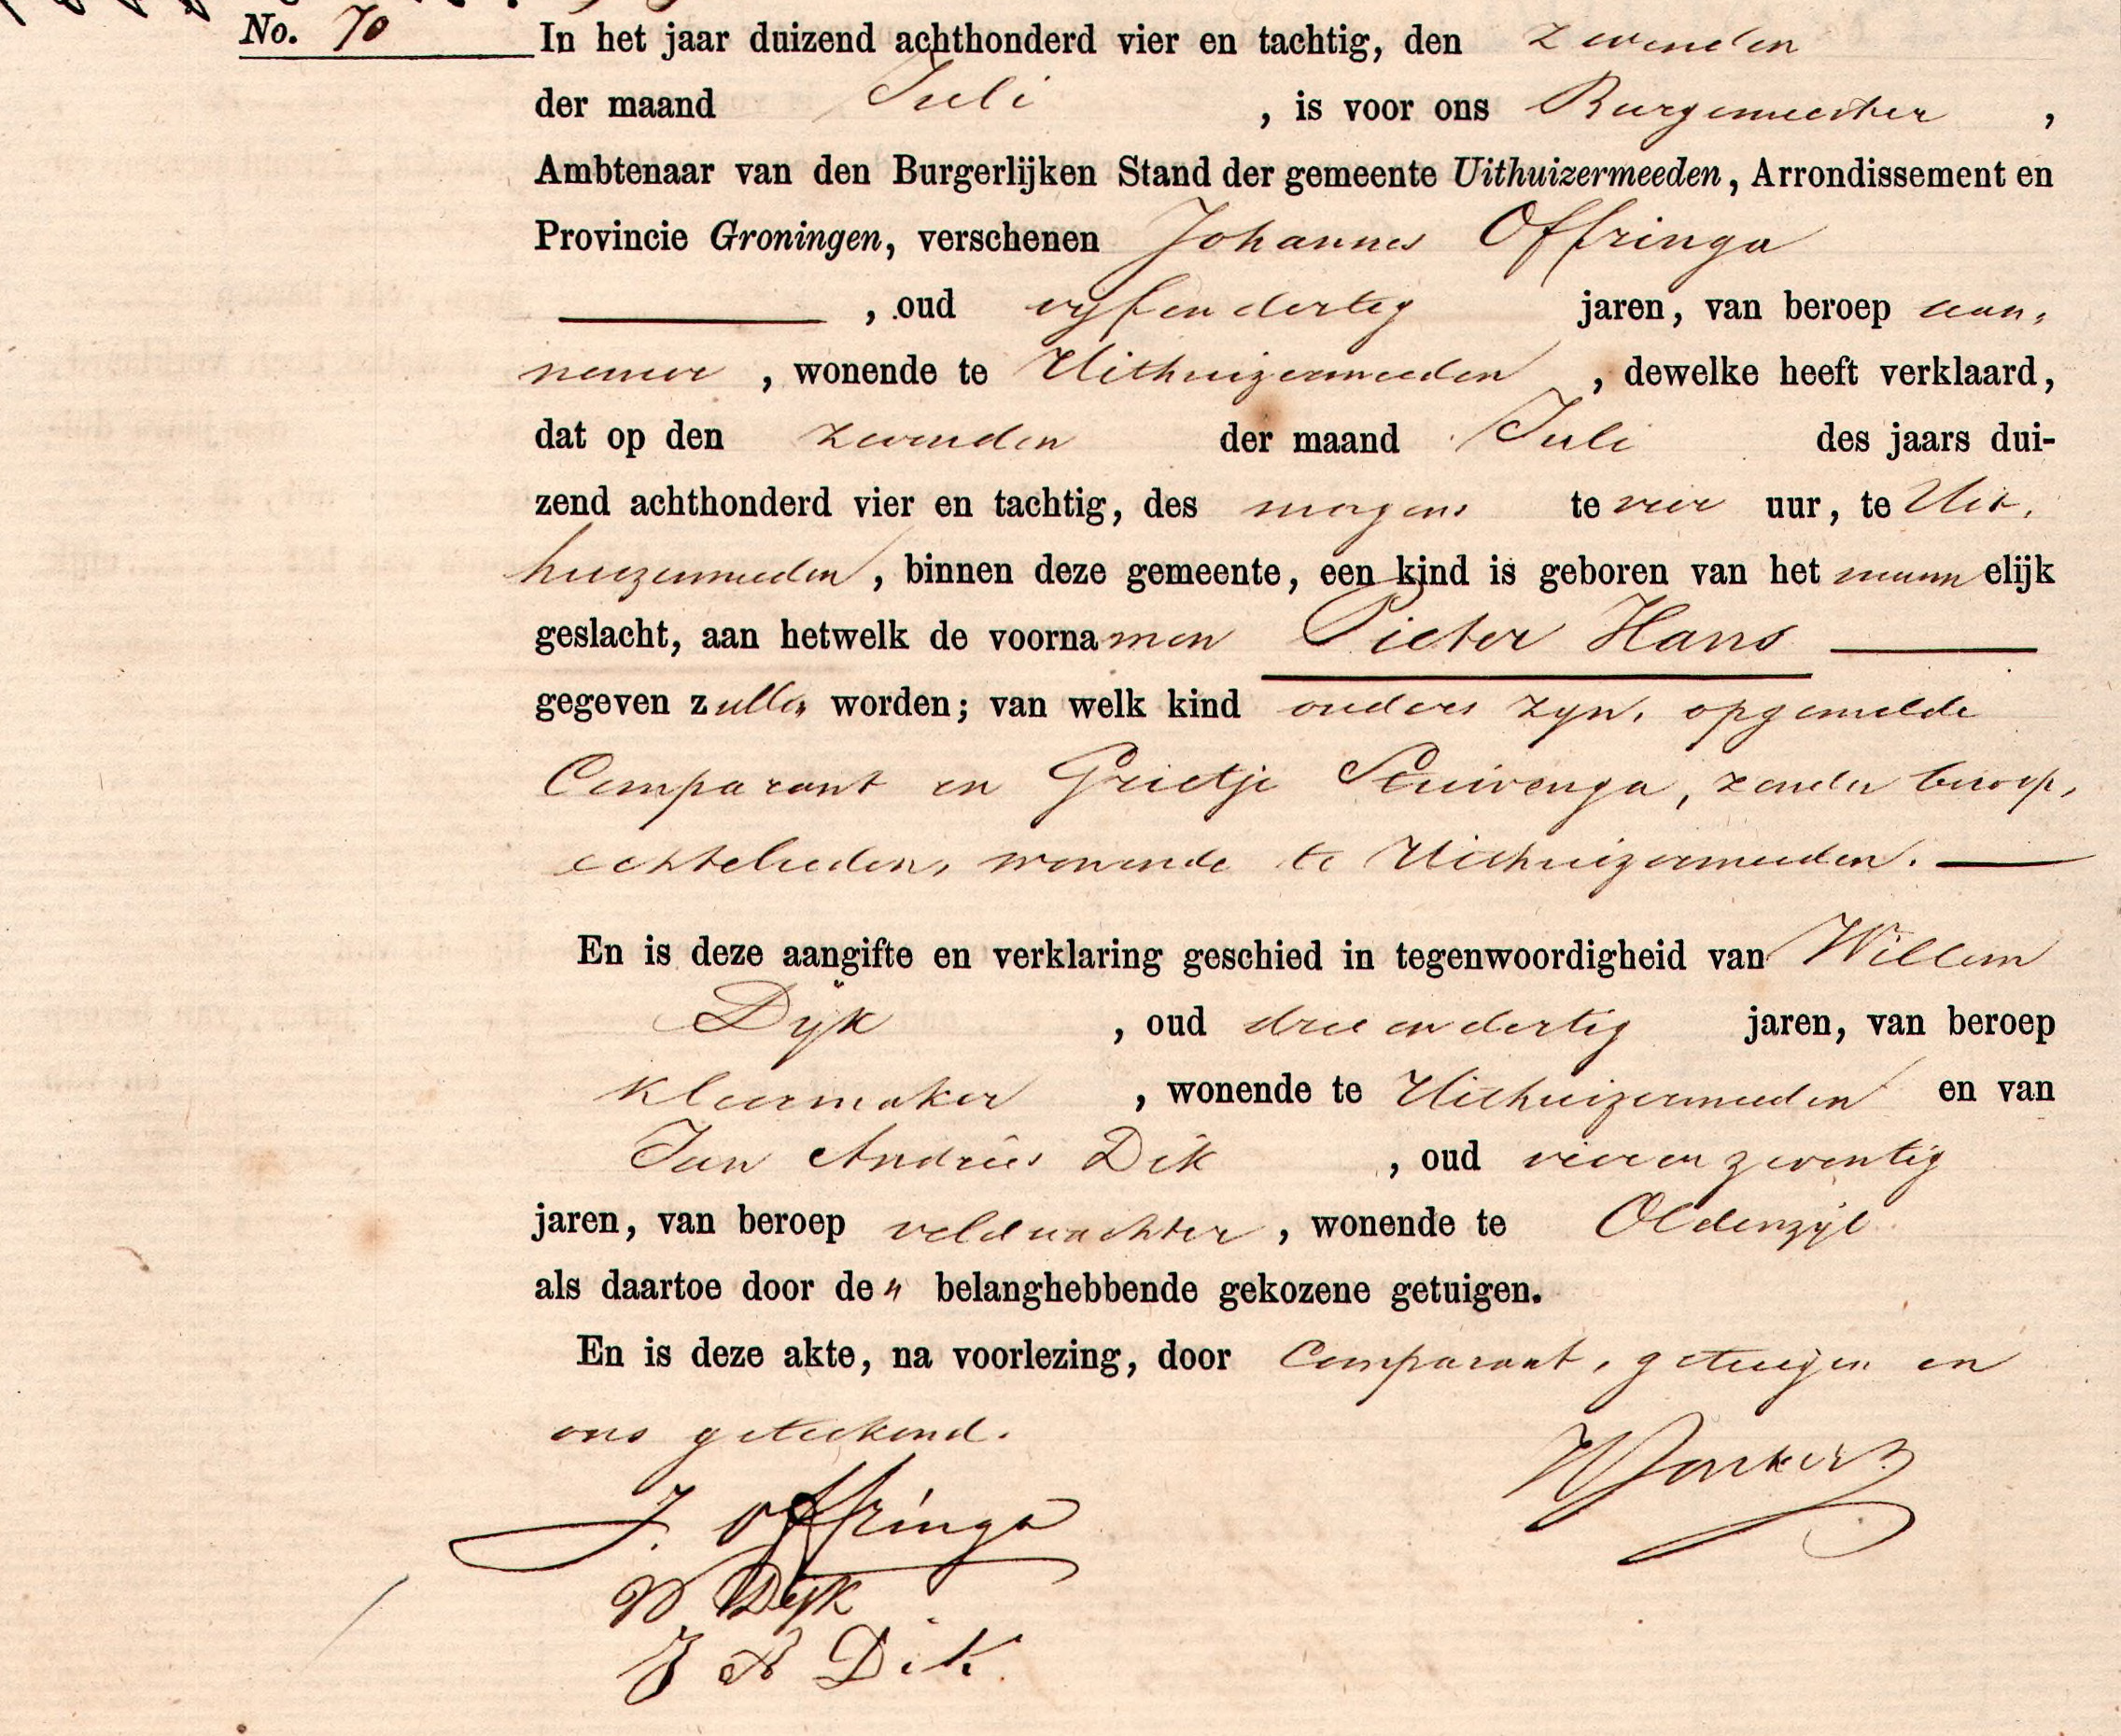 No. 70
In het jaar duizend achthonderd vier en tachtig, den zevenden
der maand Juli , is voor ons Burgemeester ,
Ambtenaar van den Burgerlijken Stand der gemeente Uithuizermeeden, Arrondissement en
Provincie Groningen, verschenen Johannes Offringa
, oud vyfendertig jaren, van beroep aan-
nemer , wonende te Uithuizermeeden , dewelke heeft verklaard,
dat op den zevenden der maand Juli des jaars dui-
zend achthonderd vier en tachtig, des morgens te vier uur, te Uit-
huizermeeden , binnen deze gemeente, een kind is geboren van het mannelijk
geslacht, aan hetwelk de voornamen Pieter Hans
gegeven zullen worden; van welk kind ouders zyn, opgemelde
Comparant en Grietje Stuivenga, zonder beroep,
echtelieden, wonende te Uithuizermeeden.
En is deze aangifte en verklaring geschied in tegenwoordigheid van Willem
Dijk , oud drie en dertig jaren, van beroep
kleermaker , wonende te Uithuizermeeden en van
Jan Andries Dik , oud vier en zeventig
jaren, van beroep veldwachter , wonende te Oldenzijl
als daartoe door de " belanghebbende gekozene getuigen.
En is deze akte, na voorlezing, door Comparant, getuigen en
ons geteekend.
J. Offringa
W Dijk
J A Dik